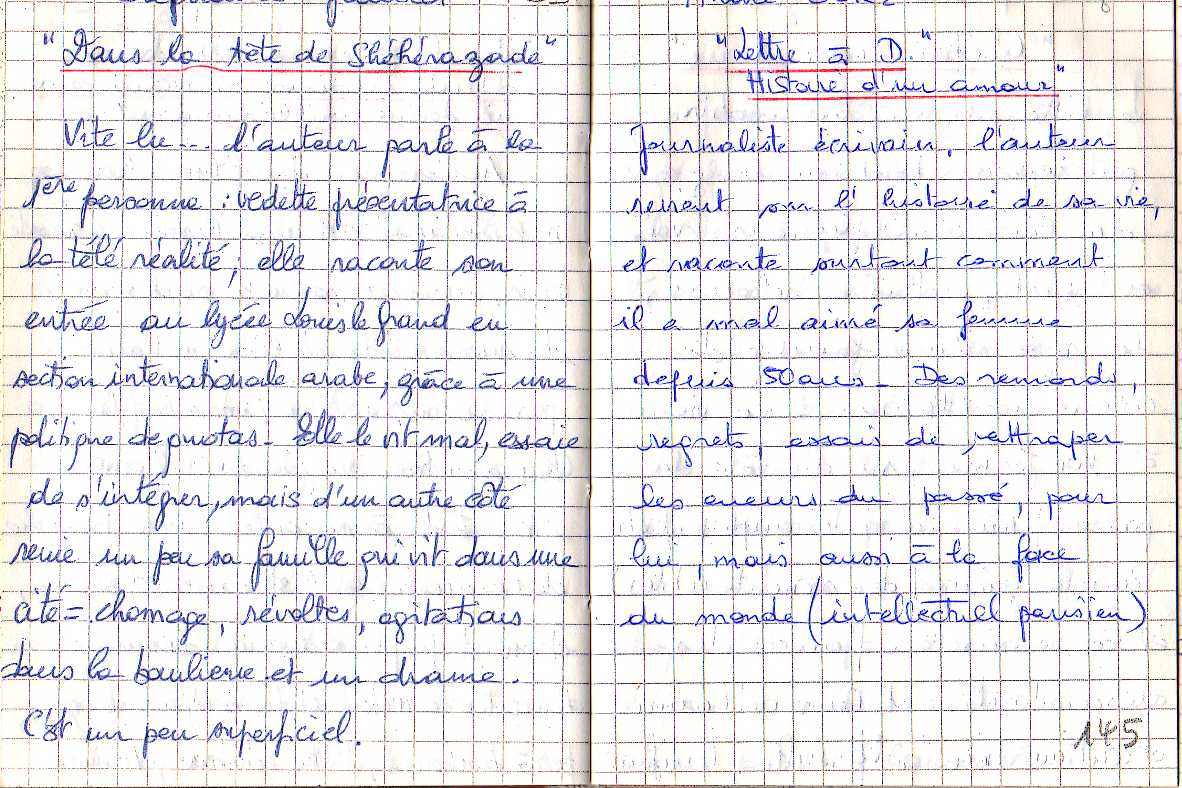 "Dans la tête de Shéhérazade"
Vite lu... l'auteur parle à la
1ère personne : vedette présentatrice à
la télé réalité, elle raconte son
entrée au lycée Louis le Grand en
section internationale arabe, grâce à une
politique de quotas - Elle le vit mal, essaie
de s'intégrer, mais d'un autre côté
renie un peu sa famille qui vit dans une
cité = chomage, révoltes, agitations
dans la banlieue et un drame.
C'est un peu superficiel.
"Lettre à D."
Histoire d'un amour"
Journaliste écrivain, l'auteur
revient sur l'histoire de sa vie,
et raconte surtout comment
il a mal aimé sa femme
depuis 50 ans - Des remords,
regrets, essais de rattraper
les erreurs du passé, pour
lui, mais aussi à la face
du monde (intellectuel parisien)
145